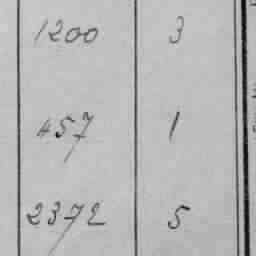 1200 3
457 1
2372 5